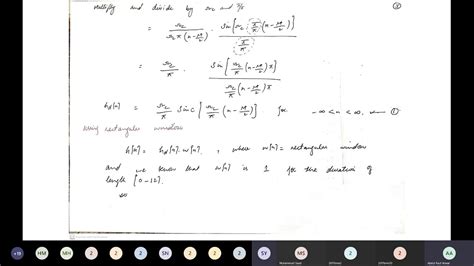 Multiply and divide by ωc and π/π
= ωc / ωc π (n - M/2) · Sin[ωc · π/π (n - M/2)] / π/π
= ωc/π · Sin[ωc/π (n - M/2) π] / ωc/π (n - M/2) π
hd[n] = ωc/π Sinc[ωc/π (n - M/2)] for -∞ < n < ∞, — ①
Using rectangular window
h[n] = hd[n] · w[n] , where w[n] = rectangular window
and we know that w[n] is 1 for the duration of
length [0 - 12].
so
+19 HM MH 2 2 2 2 2 SY MS 2 2 2 AA
Muhammad Saad